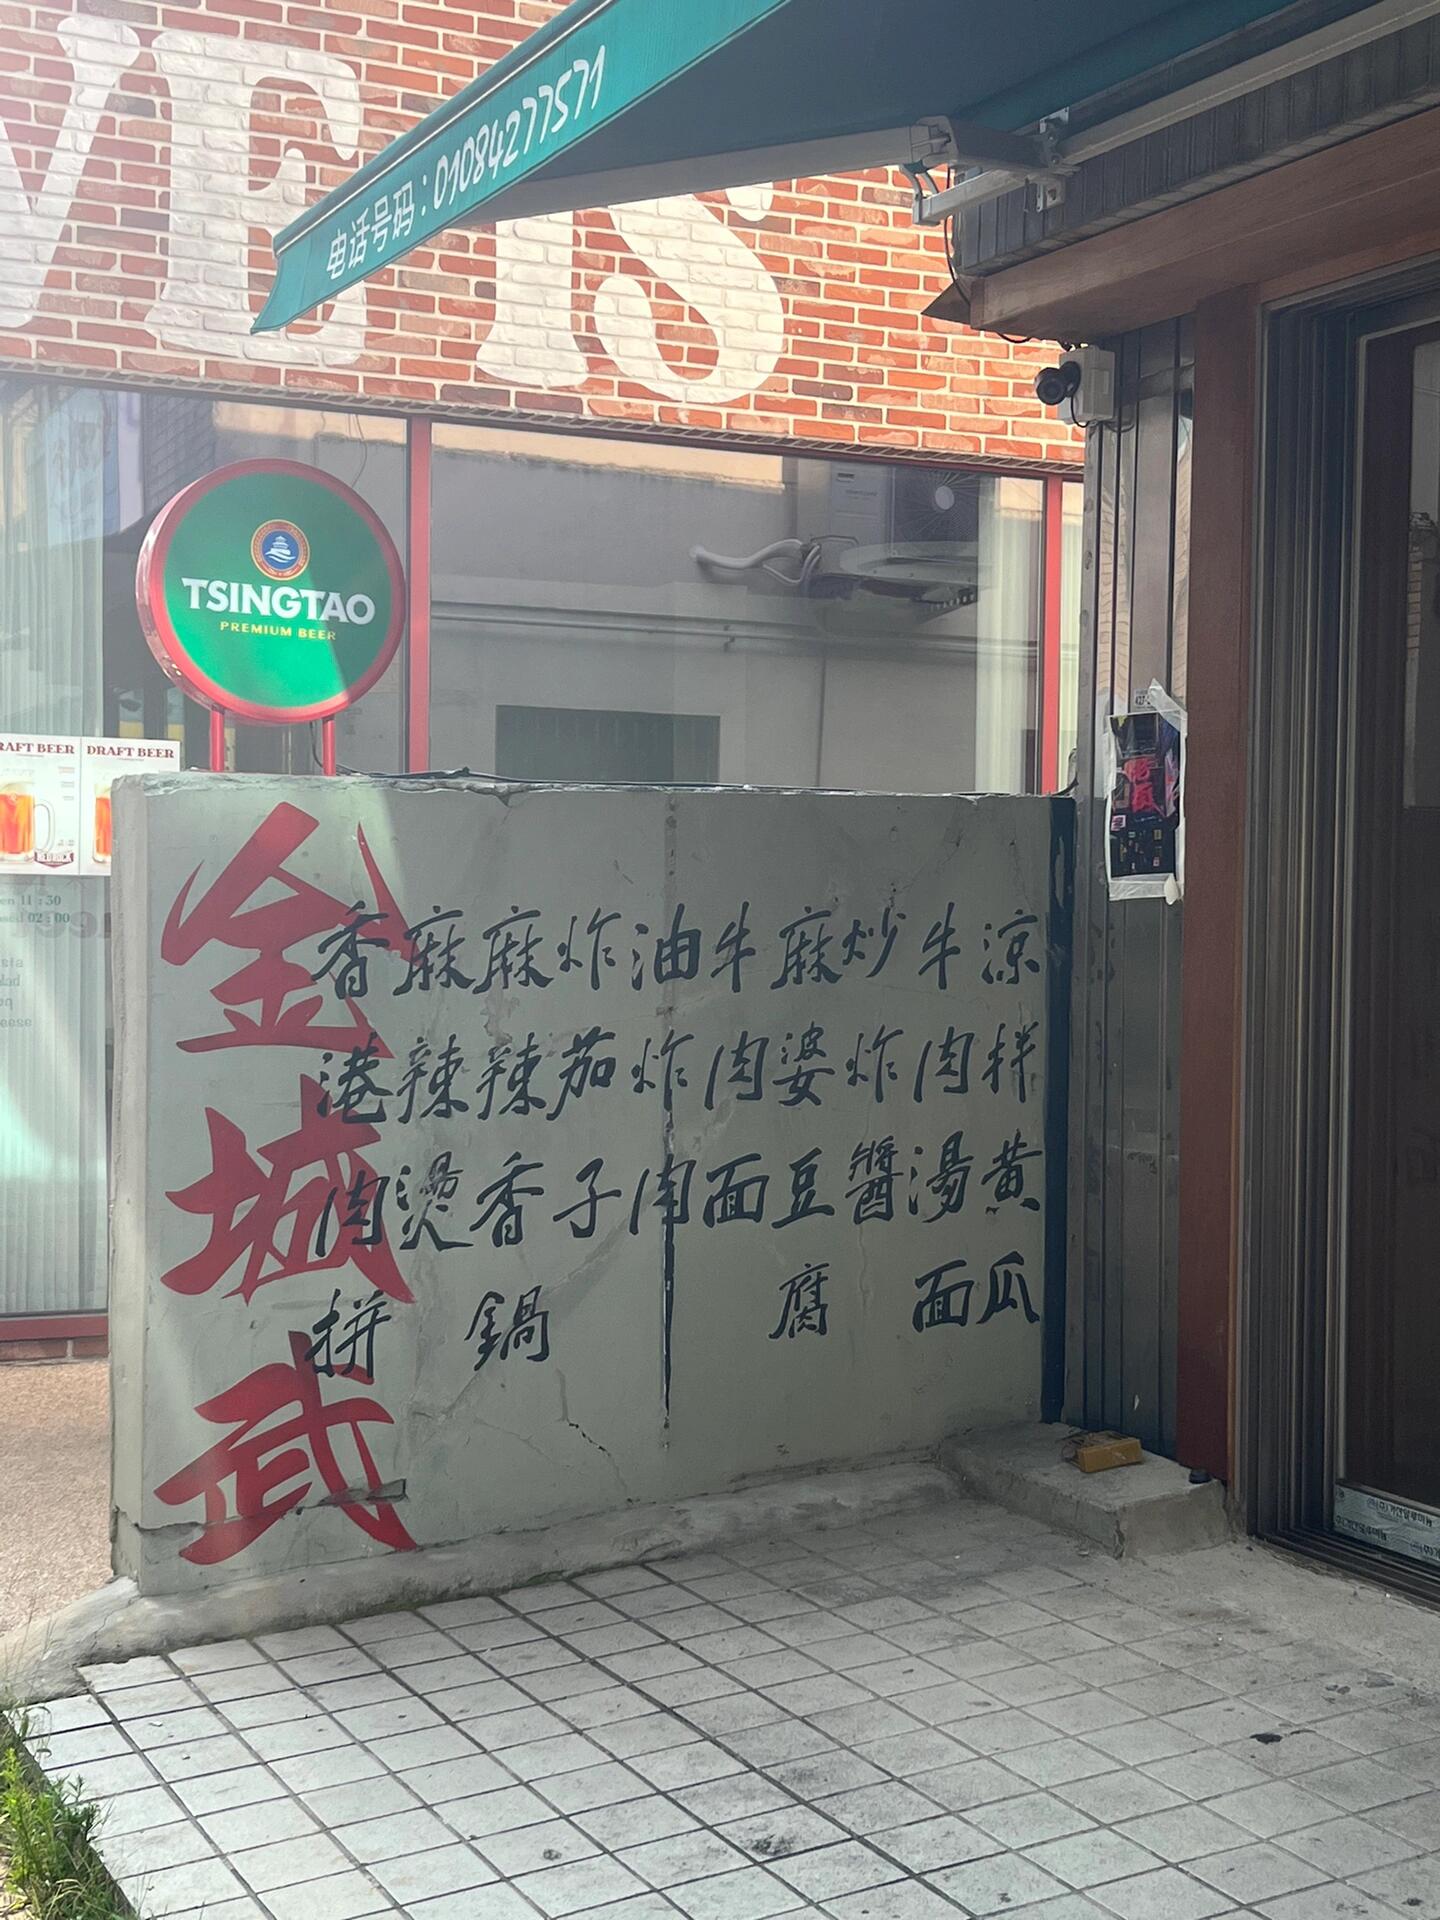 VE IS
电话号码：01084277571
TSINGTAO
PREMIUM BEER
RAFT BEER
DRAFT BEER
RED ROCK
en 11:30
osed 02:00
金城武
涼拌黄瓜
牛肉湯面
炒炸醬
麻婆豆腐
牛肉面
油炸肉
炸茄子
麻辣香鍋
麻辣燙
香港肉拼